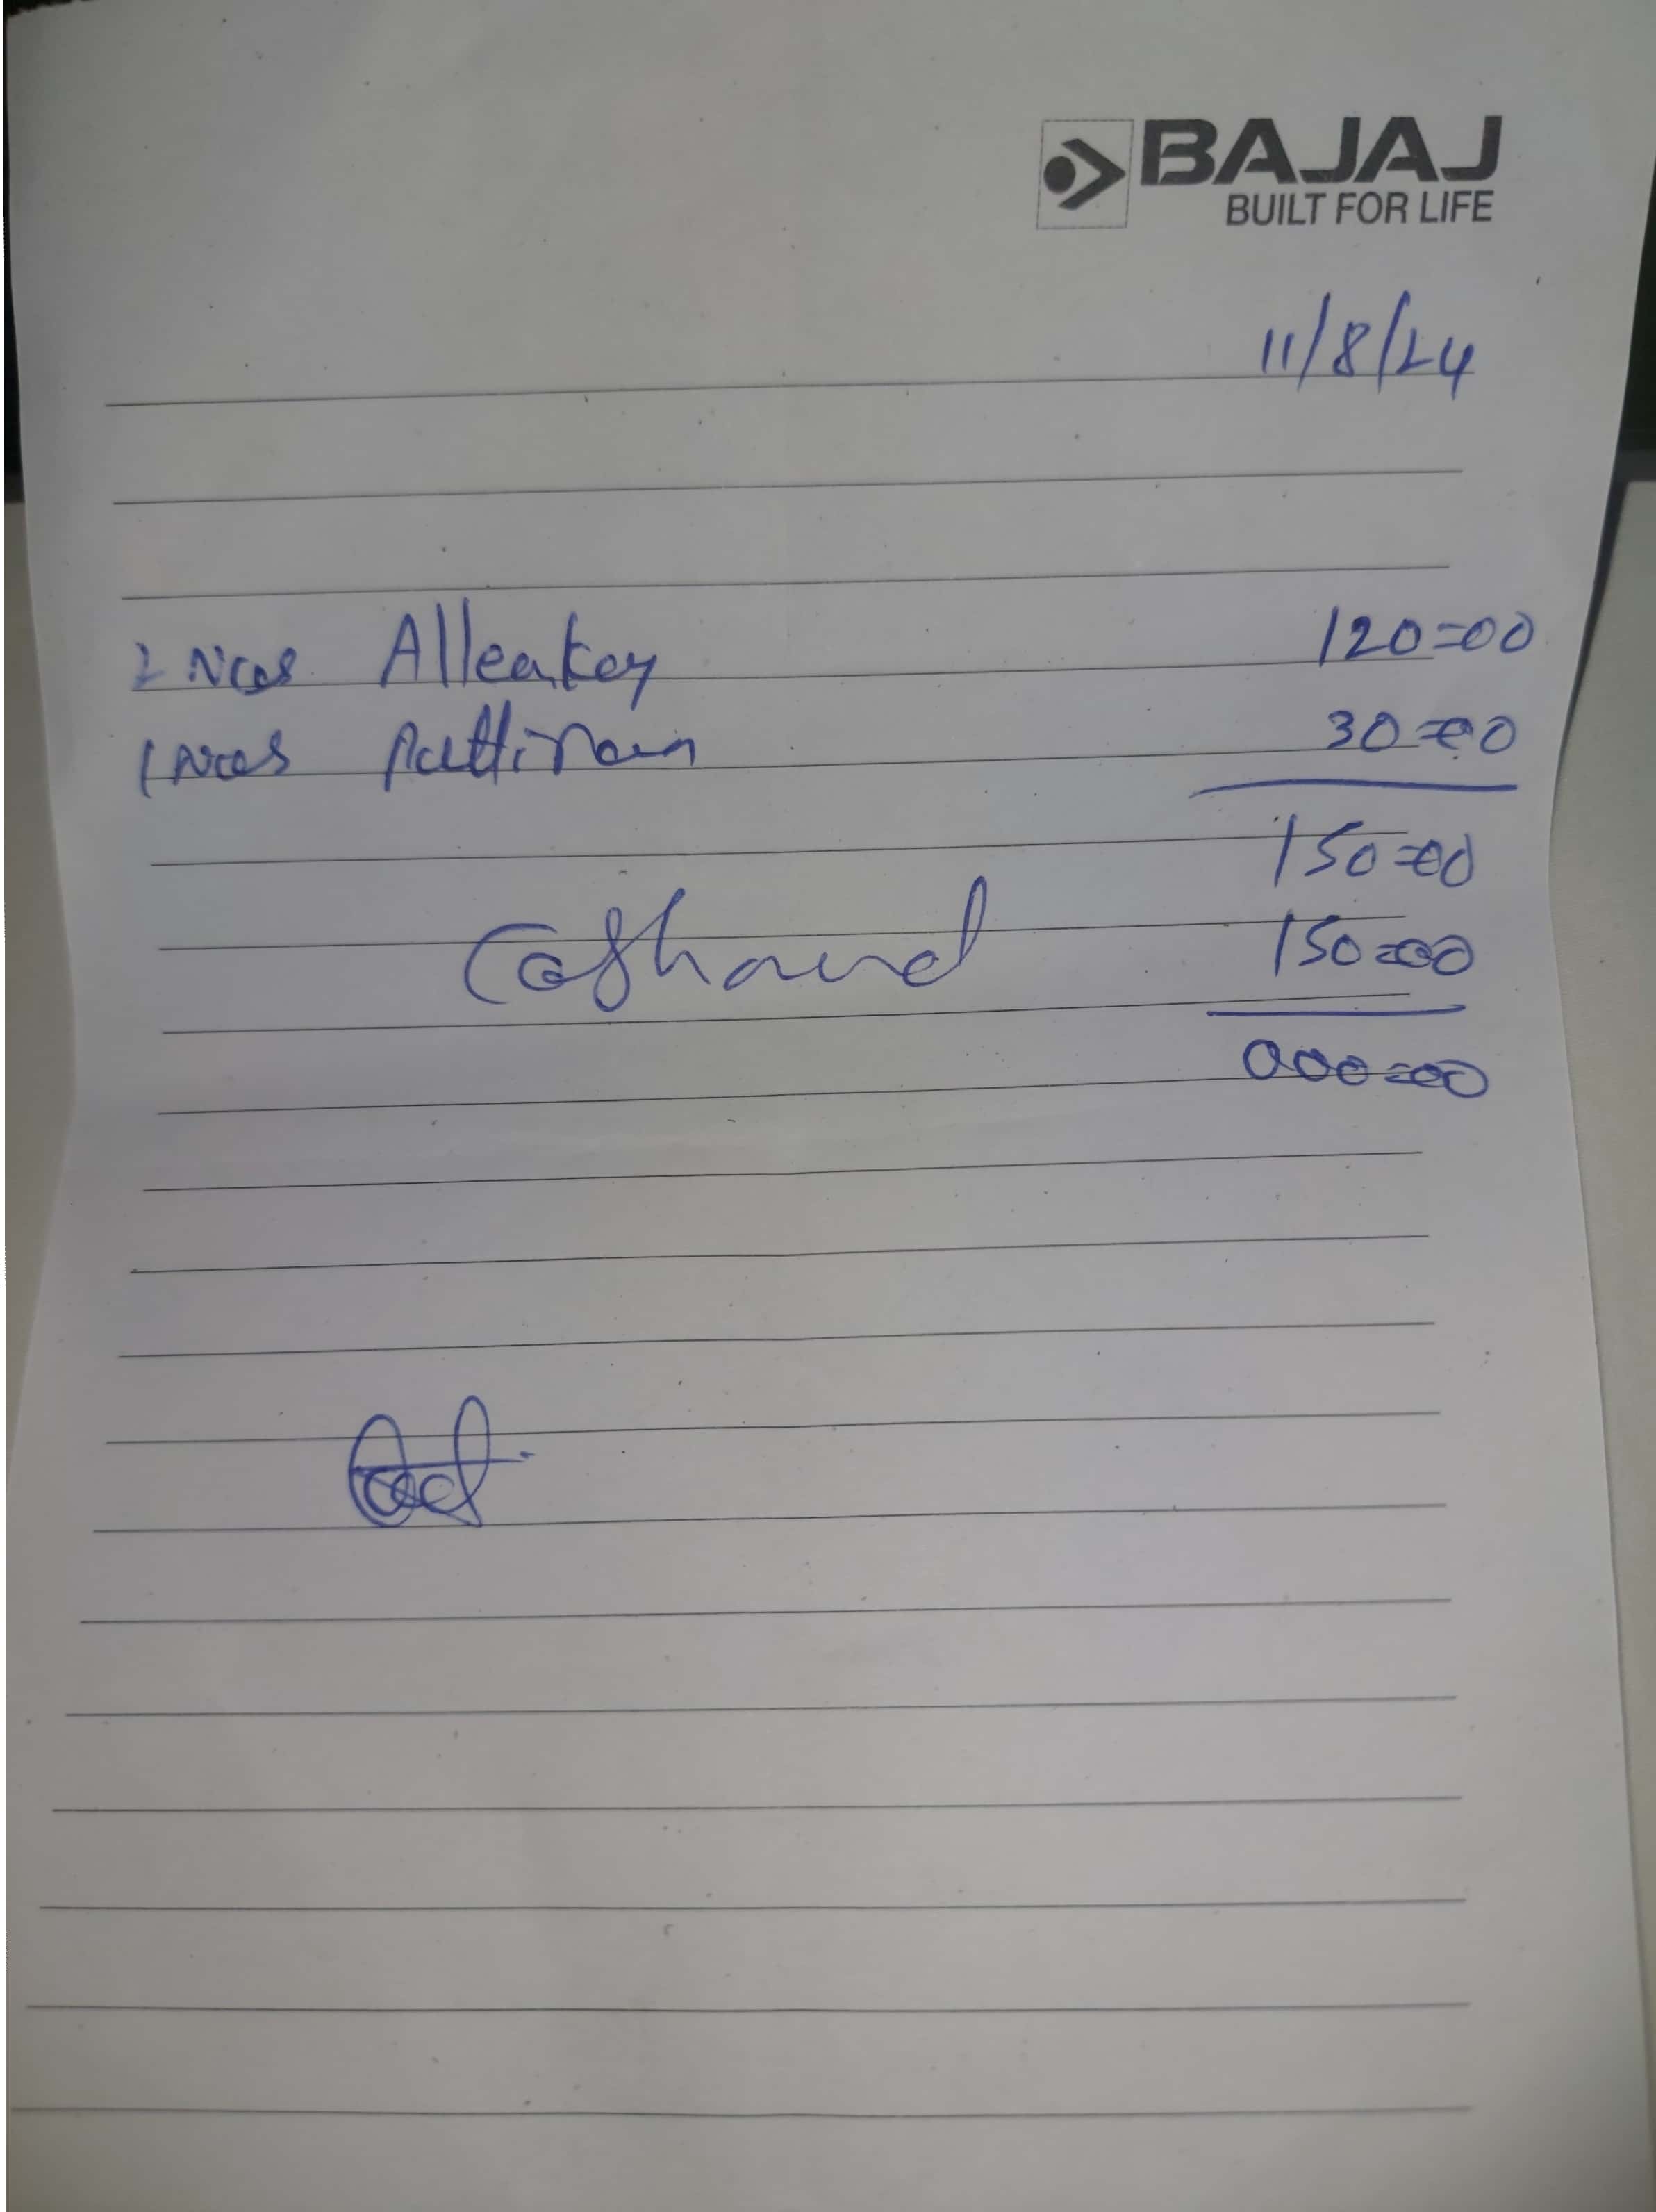 BAJAJ
BUILT FOR LIFE
11/8/24
2 Nos Allenkey 120=00
1 Nos 30=00
150=00
150=00
000=00